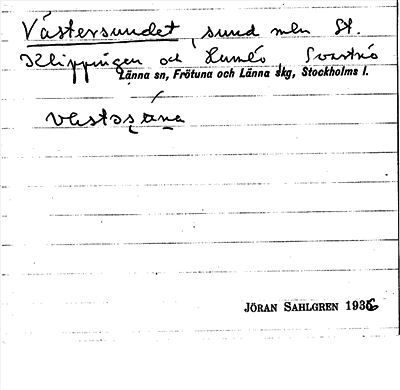 Västersundet, sund mln St.
Klippingen och Humlö Svartnö
Länna sn, Frötuna och Länna skg, Stockholms l.
JÖRAN SAHLGREN 1936